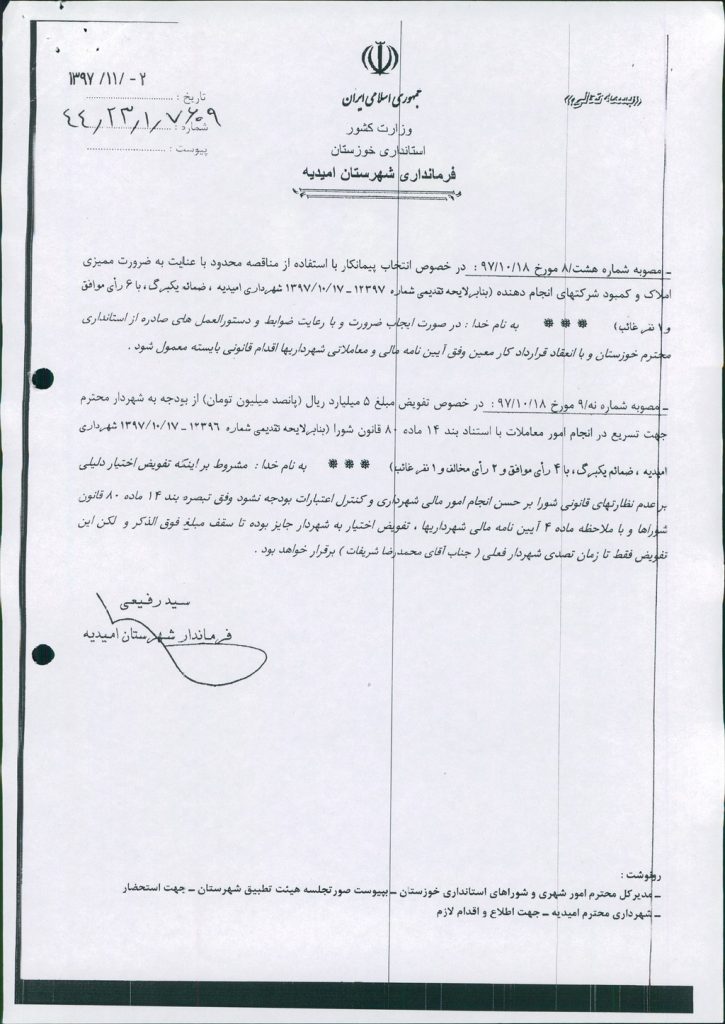 ((بسمه تعالی))
جمهوری اسلامی ایران
وزارت کشور
استانداری خوزستان
فرمانداری شهرستان امیدیه
تاریخ : ۱۳۹۷/۱۱/-۲
شماره : ۴۴٫۲۳٫۱٫۷۶۰۹
پیوست :
ـ مصوبه شماره هشت/۸ مورخ ۹۷/۱۰/۱۸ : در خصوص انتخاب پیمانکار با استفاده از مناقصه محدود با عنایت به ضرورت ممیزی
املاک و کمبود شرکتهای انجام دهنده (بنابر لایحه تقدیمی شماره ۱۲۳۹۷ ـ ۱۳۹۷/۱۰/۱۷ شهرداری امیدیه ، ضمائم یکبرگ ، با ۶ رأی موافق
و ۱ نفر غائب) *** به نام خدا : در صورت ایجاب ضرورت و با رعایت ضوابط و دستورالعمل های صادره از استانداری
محترم خوزستان و با انعقاد قرارداد کار معین وفق آیین نامه مالی و معاملاتی شهرداریها اقدام قانونی بایسته معمول شود .
ـ مصوبه شماره نه/۹ مورخ ۹۷/۱۰/۱۸ : در خصوص تفویض مبلغ ۵ میلیارد ریال (پانصد میلیون تومان) از بودجه به شهردار محترم
جهت تسریع در انجام امور معاملات با استناد بند ۱۴ ماده ۸۰ قانون شورا (بنابر لایحه تقدیمی شماره ۱۲۳۹۶ ـ ۱۳۹۷/۱۰/۱۷ شهرداری
امیدیه ، ضمائم یکبرگ ، با ۴ رأی موافق و ۲ رأی مخالف و ۱ نفر غائب) *** به نام خدا : مشروط بر اینکه تفویض اختیار دلیلی
بر عدم نظارتهای قانونی شورا بر حسن انجام امور مالی شهرداری و کنترل اعتبارات بودجه نشود وفق تبصره بند ۱۴ ماده ۸۰ قانون
شوراها و با ملاحظه ماده ۴ آیین نامه مالی شهرداریها ، تفویض اختیار به شهردار جایز بوده تا سقف مبلغ فوق الذکر و لکن این
تفویض فقط تا زمان تصدی شهردار فعلی ( جناب آقای محمدرضا شریفات ) برقرار خواهد بود .
سید رفیعی
فرماندار شهرستان امیدیه
رونوشت :
ـ مدیرکل محترم امور شهری و شوراهای استانداری خوزستان ـ بپیوست صورتجلسه هیئت تطبیق شهرستان ـ جهت استحضار
ـ شهرداری محترم امیدیه ـ جهت اطلاع و اقدام لازم